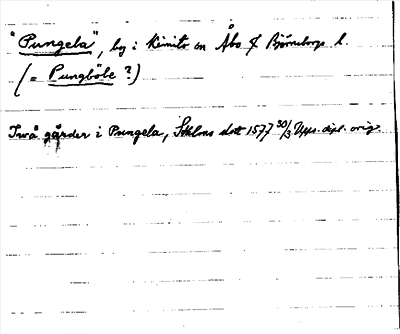 "Pungela", by i Kimito sn Åbo & Björneborgs l.
(= Pungböle?)
Twå gårder i Pungela, Sthlms slott 1577 30/3 Upps. dipl. orig.